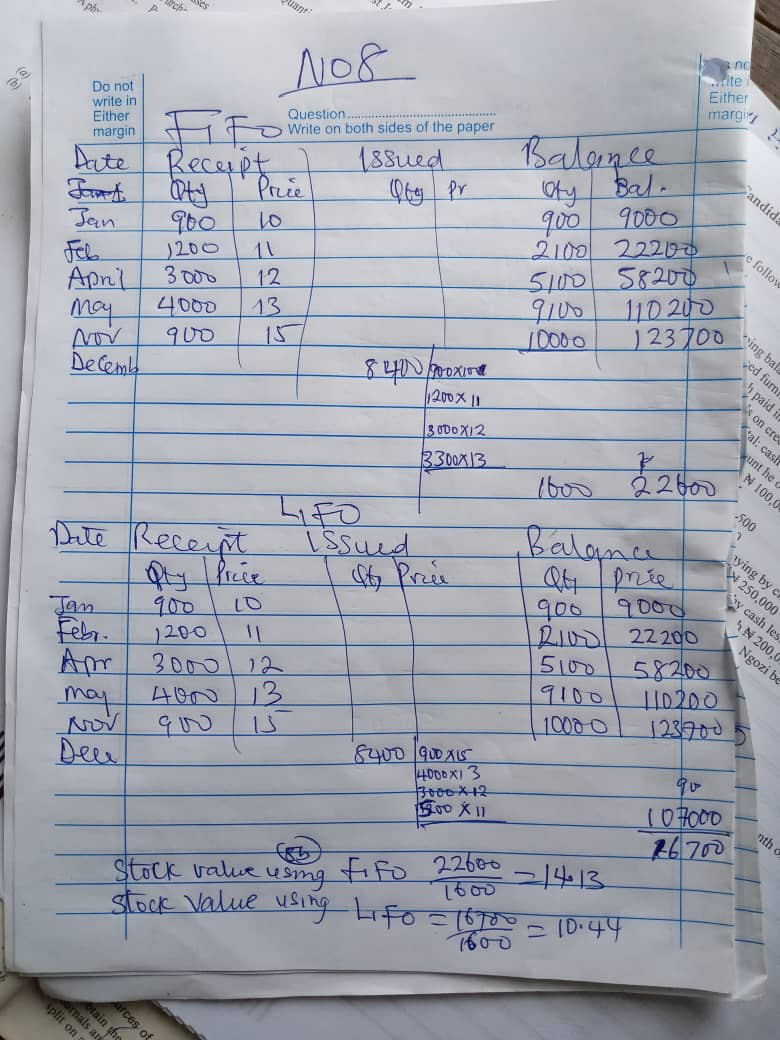 NO8
Do not
write in
Either
margin
Question
Write on both sides of the paper
Either
FiFo
Date Receipt Issued Balance
Qty Price Qty Pr Qty Bal.
Jan 900 10 900 9000
Feb 1200 11 2100 22200
April 3000 12 5100 58200
May 4000 13 9100 110200
Nov 900 15 10000 123700
Decemb 8400 900x10
1200 x 11
3000x12
3300x13
1600 22600
LiFO
Date Receipt Issued Balance
Qty Price Qty Price Qty Price
Jan 900 10 900 9000
Febr. 1200 11 2100 22200
Apr 3000 12 5100 58200
May 4000 13 9100 110200
Nov 900 15 10000 123700
Dece 8400 900x15
4000x13
3000x12
500 x 11
107000
16700
8b
Stock value using FiFO 22600/1600 = 14.13
Stock value using LiFO = 16700/1600 = 10.44